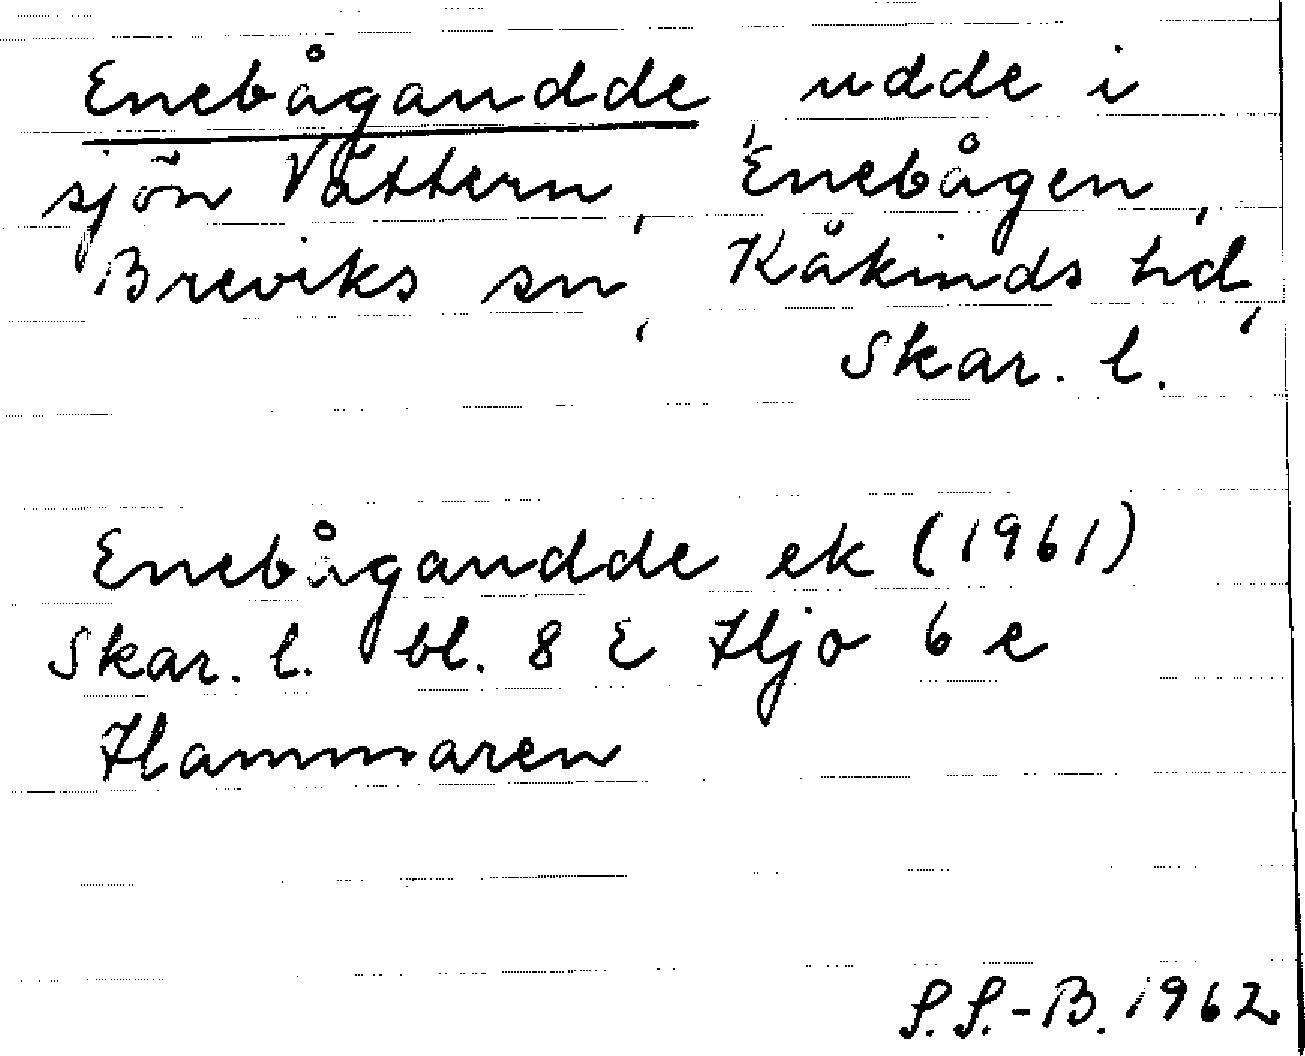 Enebågaudde, udde i
sjön Vättern, Enebågen,
Breviks sn, Kåkinds hd,
Skar. l.
Enebågaudde ek (1961)
Skar. l. bl. 8 E Hjo 6 e
Hammaren
S.S.-B. 1962